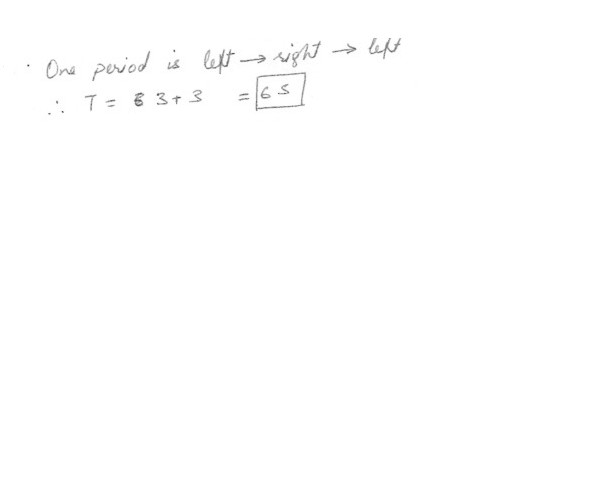 · One period is left → right → left
∴ T = 3 + 3 = 6 s